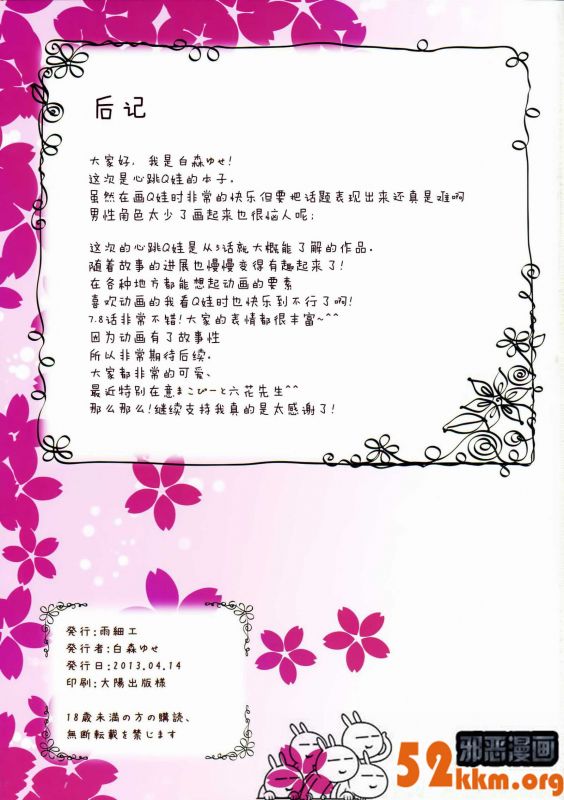 后记
大家好，我是白森ゆせ!
这次是心跳Q娃的本子.
虽然在画Q娃时非常的快乐但要把话题表现出来还真是难啊
男性角色太少了画起来也很恼人呢;
这次的心跳Q娃是从5话就大概能了解的作品.
随着故事的进展也慢慢变得有趣起来了!
在各种地方都能想起动画的要素
喜欢动画的我看Q娃时也快乐到不行了啊!
7.8话非常不错!大家的表情都很丰富~^^
因为动画有了故事性
所以非常期待后续.
大家都非常的可爱、
最近特别在意まこぴーと六花先生^^
那么那么!继续支持我真的是太感谢了!
発行:雨細工
発行者:白森ゆせ
発行日:2013.04.14
印刷:大陽出版様
18歳未満の方の購読、
無断転載を禁じます
52 邪恶漫画
kkm.org